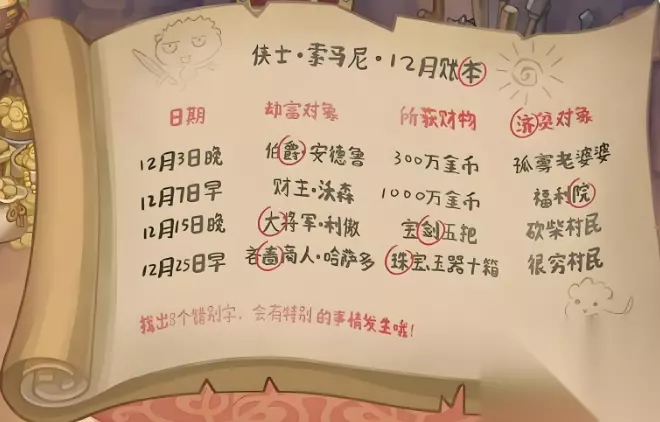 侠士·索马尼·12月账本
日期 劫富对象 所获财物 济贫对象
12月3日晚 伯爵·安德鲁 300万金币 孤寡老婆婆
12月7日早 财主·沃森 1000万金币 福利院
12月15日晚 大将军·利傲 宝剑五把 砍柴村民
12月25日早 吝啬商人·哈萨多 珠宝玉器十箱 很穷村民
找出8个错别字，会有特别的事情发生哦！